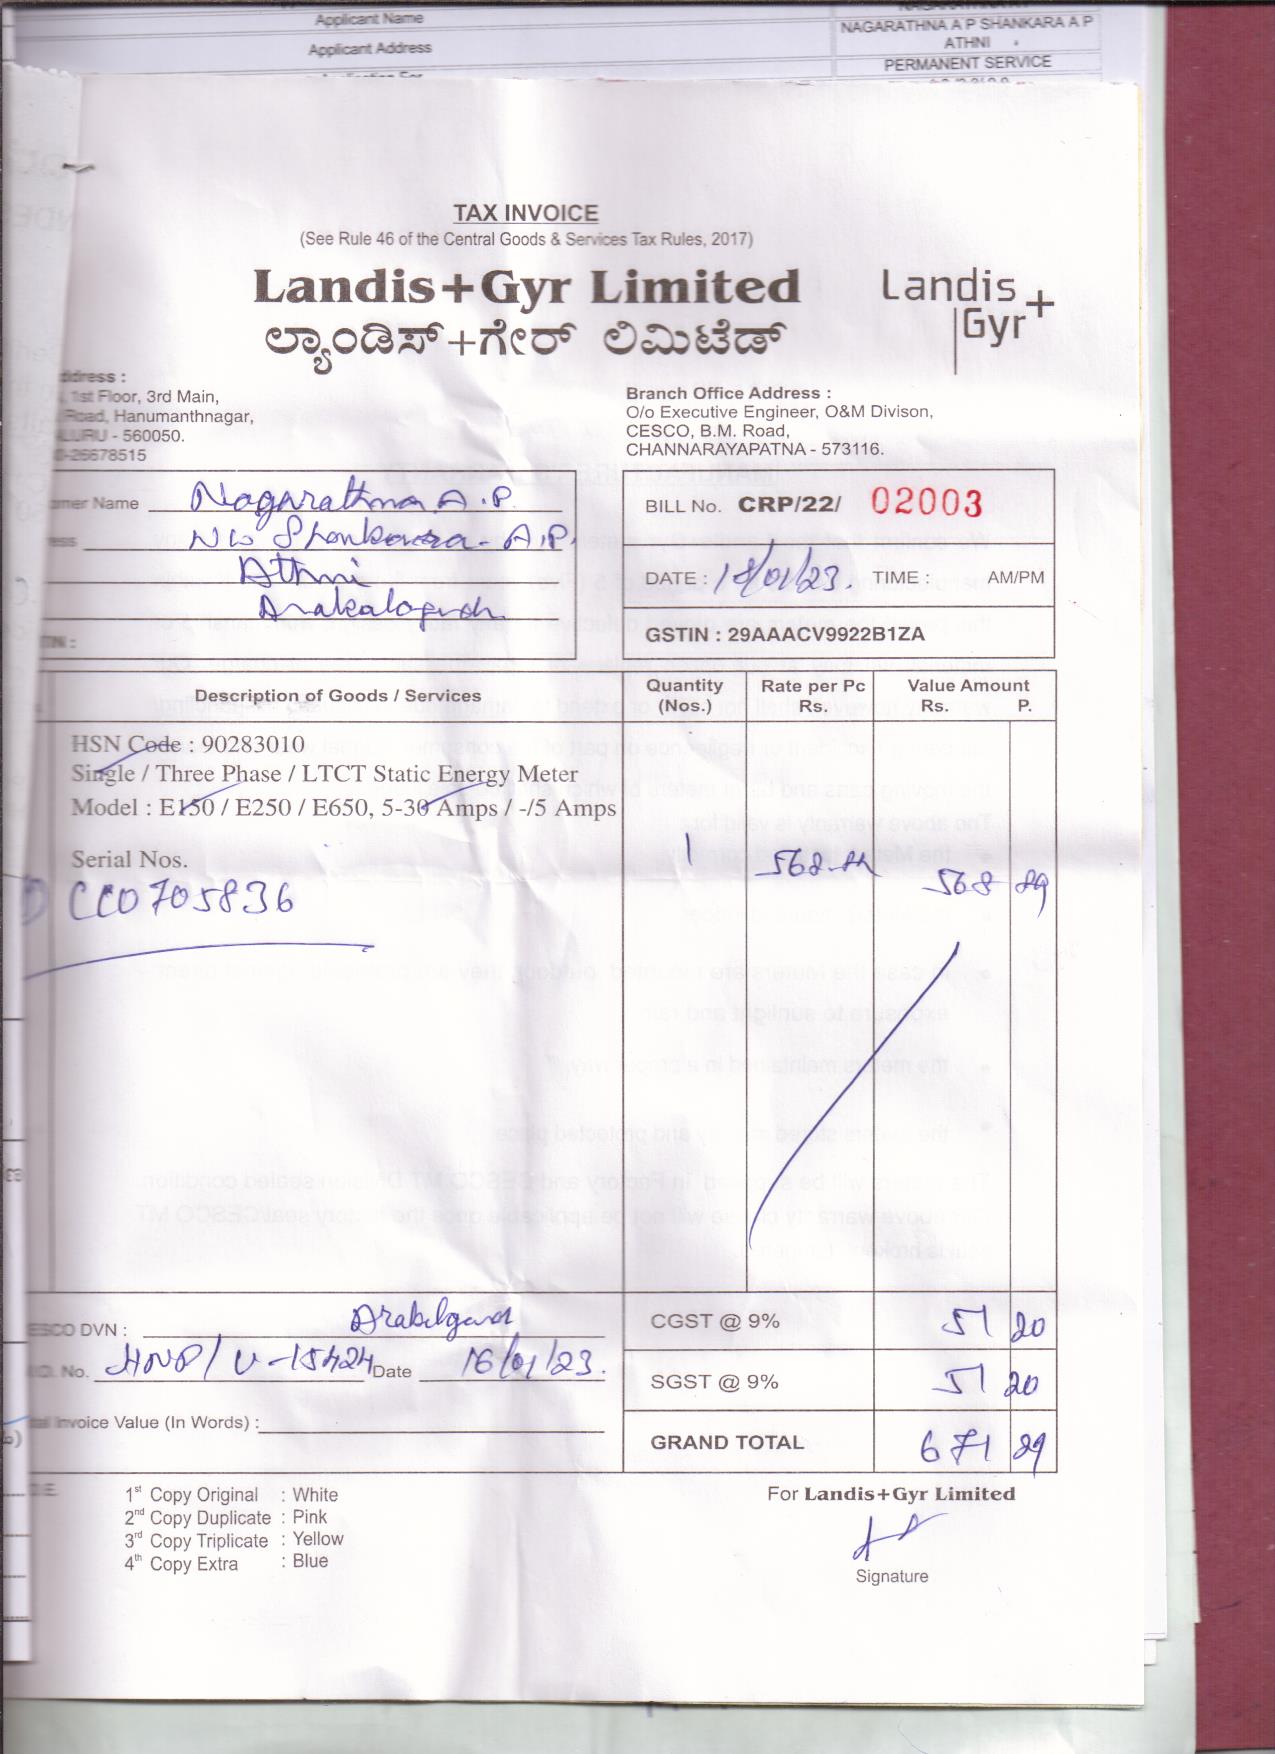 Applicant Name
NAGARATHNA A P SHANKARA A P
Applicant Address
ATHNI
PERMANENT SERVICE
TAX INVOICE
(See Rule 46 of the Central Goods & Services Tax Rules, 2017)
Landis+Gyr Limited
Landis+Gyr
ಲ್ಯಾಂಡಿಸ್+ಗೇರ್ ಲಿಮಿಟೆಡ್
1st Floor, 3rd Main,
Road, Hanumanthnagar,
- 560050.
-26678515
Branch Office Address :
O/o Executive Engineer, O&M Divison,
CESCO, B.M. Road,
CHANNARAYAPATNA - 573116.
Name Nagarathna A.P.
W/o Shankara A.P.
Athni
Arakalagud
BILL No. CRP/22/ 02003
DATE : 18/01/23. TIME : AM/PM
GSTIN : 29AAACV9922B1ZA
Description of Goods / Services Quantity (Nos.) Rate per Pc Rs. Value Amount Rs. P.
HSN Code : 90283010
Single / Three Phase / LTCT Static Energy Meter
Model : E150 / E250 / E650, 5-30 Amps / -/5 Amps
Serial Nos. 1 568.89 568 89
CC0705836
DVN : Arakalgud
No. HNP/U-15424 Date 16/01/23.
Invoice Value (In Words) :
CGST @ 9% 51 20
SGST @ 9% 51 20
GRAND TOTAL 671 29
1st Copy Original : White
2nd Copy Duplicate : Pink
3rd Copy Triplicate : Yellow
4th Copy Extra : Blue
For Landis+Gyr Limited
Signature